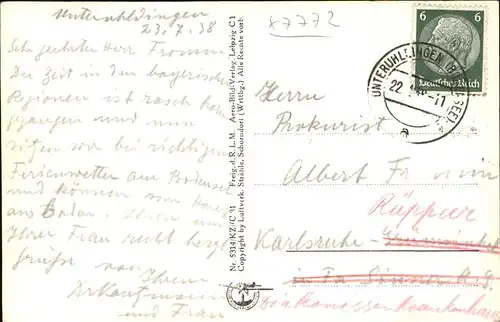 Unteruhldingen
23.7.38
Sehr geehrter Herr Fromm
Die Zeit in den bayerischen
Regionen ist rasch
gegangen und nun
wir bei richtigem
Ferienwetter am Bodensee
und können von
aus baden. Ihnen und
Ihrer Frau recht herzl.
Grüsse von
Ihrem
Kaufmann
und Frau
x7772
Nr. 5314/KZ/C 31 Freig. d. R. L. M. Aero-Bild-Verlag, Leipzig C 1
Copyright by Luftverk. Strähle, Schorndorf (Wttbg.) Alle Rechte vorb.
6 6
Deutsches Reich
UNTERUHLDINGEN (BODENSEE)
22. -11
a
Herrn
Prokurist
Albert
Rüppur
Karlsruhe
in Fa. Sinner A.G.
Diakonissenkrankenhaus